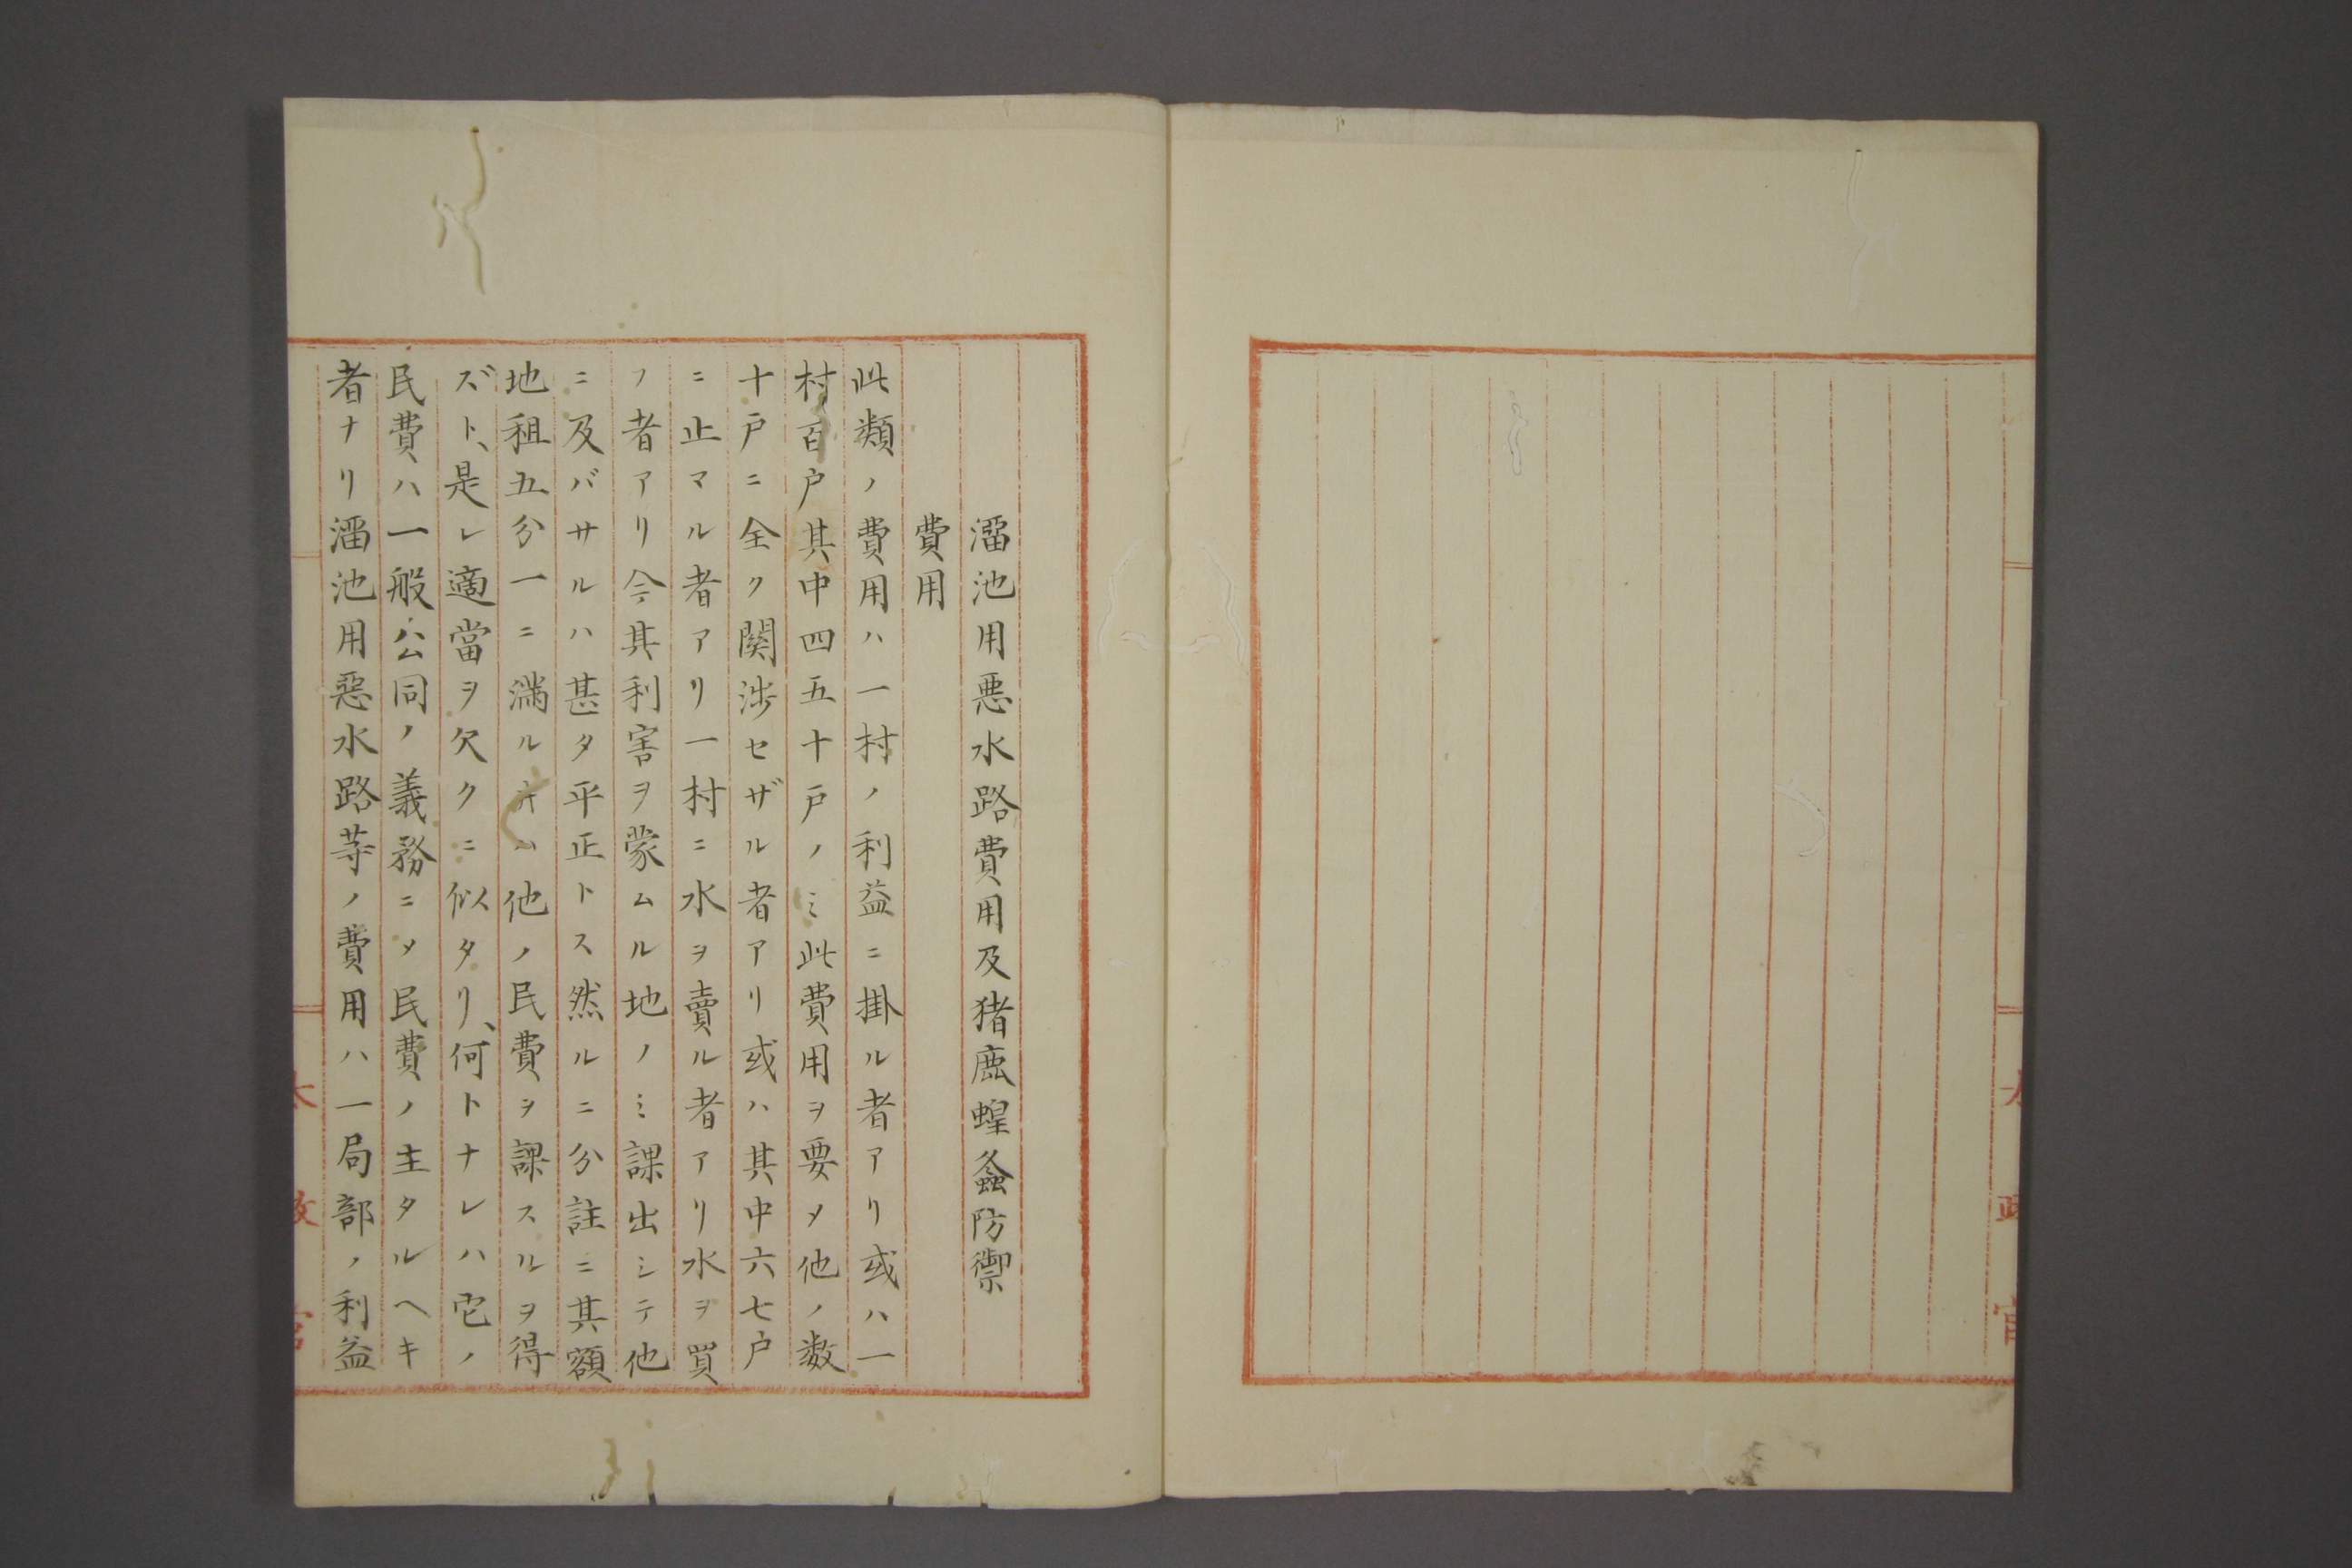 太政官
溜池用悪水路費用及猪鹿蝗螽防禦
費用
此類ノ費用ハ一村ノ利益ニ掛ル者アリ或ハ一
村百戸其中四五十戸ノミ此費用ヲ要メ他ノ数
十戸ニ全ク関渉セザル者アリ或ハ其中六七戸
ニ止マル者アリ一村ニ水ヲ賣ル者アリ水ヲ買
フ者アリ今其利害ヲ蒙ムル地ノミ課出シテ他
ニ及バサルハ甚タ平正トス然ルニ分註ニ其額
地租五分一ニ満ルキハ他ノ民費ヲ課スルヲ得
ズト、是レ適當ヲ欠クニ似タリ、何トナレハ它ノ
民費ハ一般公同ノ義務ニメ民費ノ主タルヘキ
者ナリ溜池用惡水路等ノ費用ハ一局部ノ利益
太政官